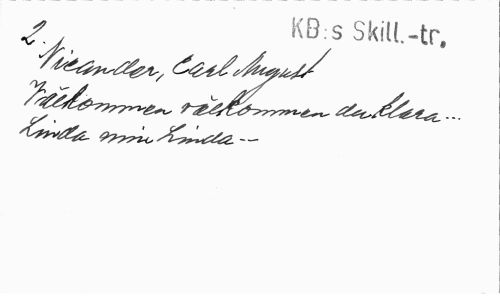 KB:s Skill.-tr.
2.
Nicander, Carl August
Välkommen välkommen du klara...
Linda min Linda--